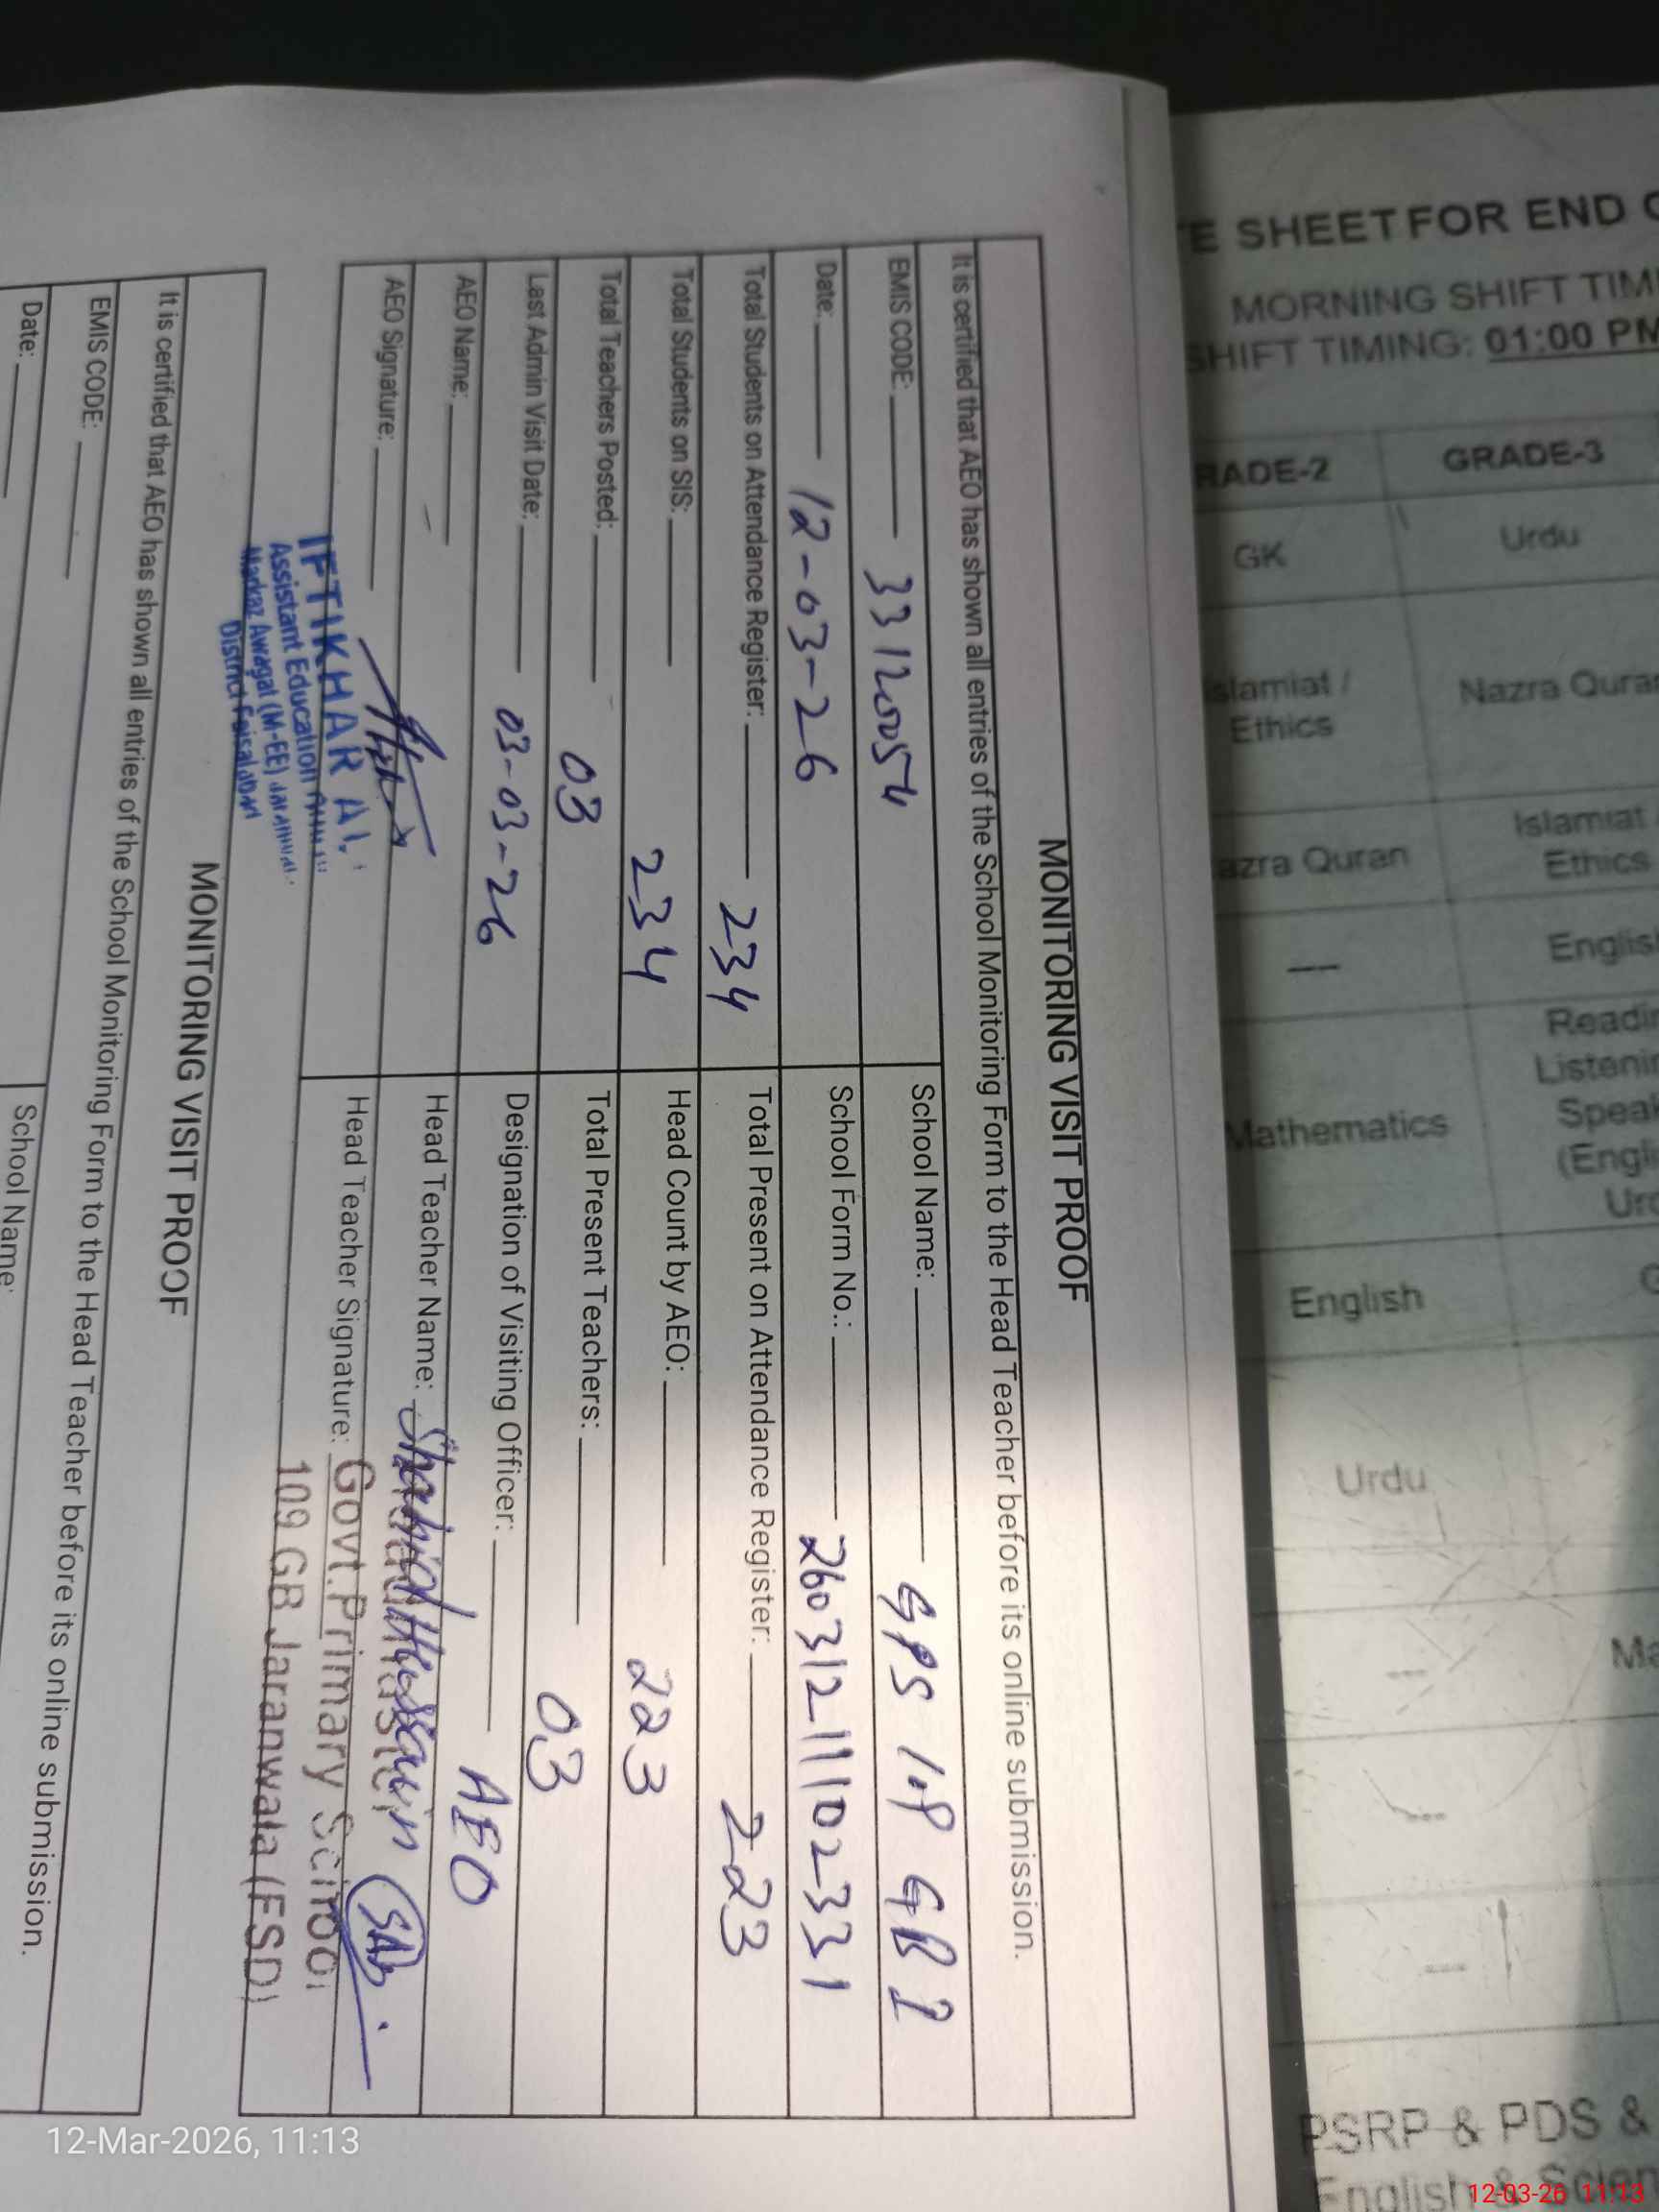 MONITORING VISIT PROOF
It is certified that AEO has shown all entries of the School Monitoring Form to the Head Teacher before its online submission.
EMIS CODE: 33120054
School Name: GPS 109 GB I
Date: 12-03-26
School Form No.: 26031211102331
Total Students on Attendance Register: 234
Total Present on Attendance Register: 223
Total Students on SIS: 234
Head Count by AEO: 223
Total Teachers Posted: 03
Total Present Teachers: 03
Last Admin Visit Date: 03-03-26
Designation of Visiting Officer: AEO
AEO Name:
Head Teacher Name: Shahid Hussain
AEO Signature:
Head Teacher Signature:
IFTIKHAR
Assistant Education
Markaz Awagat (M-EE)
District Faisalabad
Govt. Primary School
109 GB Jaranwala (FSD)
MONITORING VISIT PROOF
It is certified that AEO has shown all entries of the School Monitoring Form to the Head Teacher before its online submission.
EMIS CODE:
Date:
School Name:
E SHEET FOR END
MORNING SHIFT TIM
SHIFT TIMING: 01:00 PM
RADE-2 GRADE-3
GK Urdu
slamiat / Ethics Nazra Quran
azra Quran Islamiat Ethics
--- English
Mathematics Reading Listening Speak (Engli Urd
English
Urdu
Ma
PSRP & PDS &
English & Scien
12-Mar-2026, 11:13
12-03-26 11:13